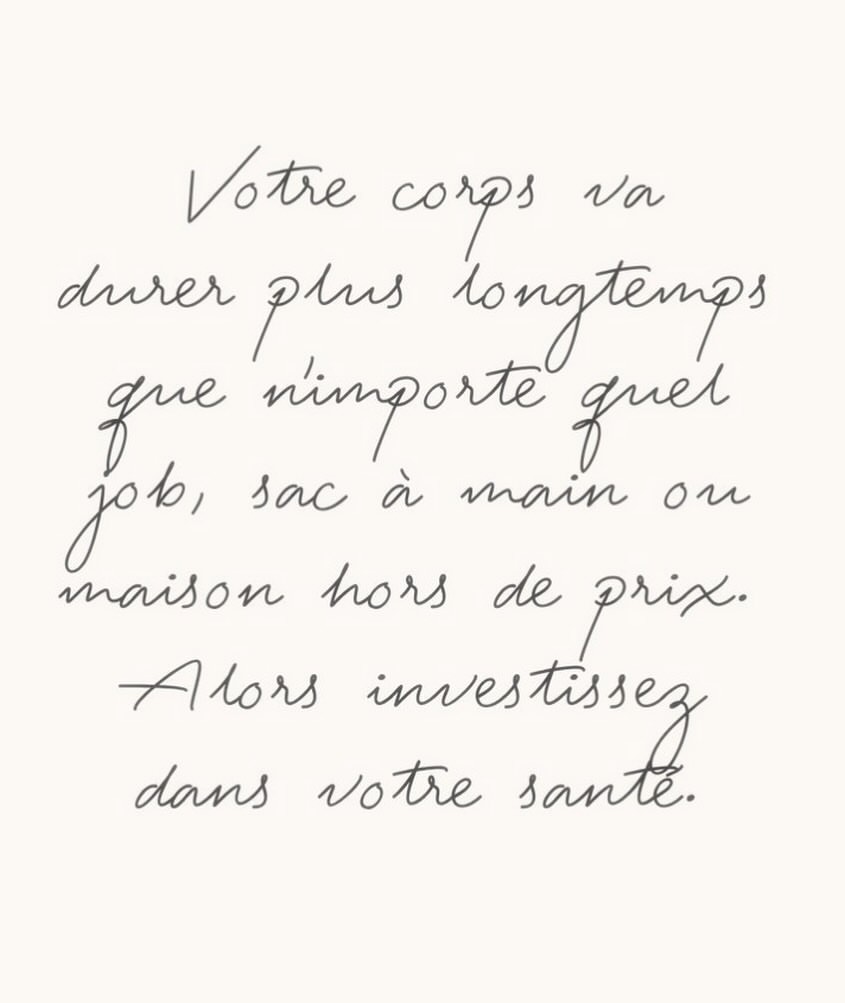 Votre corps va
durer plus longtemps
que n'importe quel
job, sac à main ou
maison hors de prix.
Alors investissez
dans votre santé.